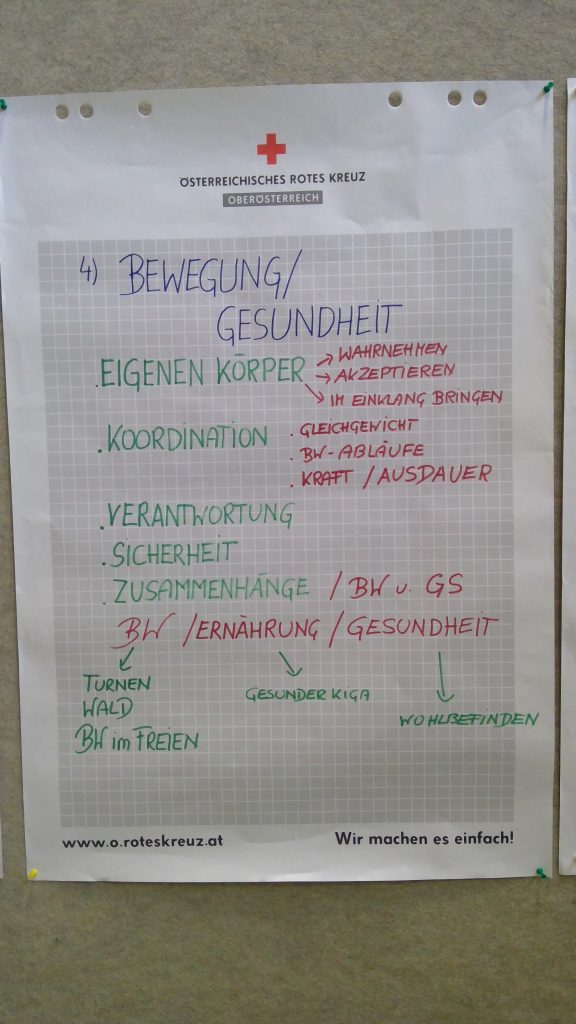 ÖSTERREICHISCHES ROTES KREUZ
OBERÖSTERREICH
4) BEWEGUNG/
GESUNDHEIT
. EIGENEN KÖRPER → WAHRNEHMEN
→ AKZEPTIEREN
↘ IM EINKLANG BRINGEN
. KOORDINATION . GLEICHGEWICHT
. BW-ABLÄUFE
. KRAFT / AUSDAUER
. VERANTWORTUNG
. SICHERHEIT
. ZUSAMMENHÄNGE / BW u. GS
BW / ERNÄHRUNG / GESUNDHEIT
TURNEN
WALD
BW im FREIEN
GESUNDER KIGA
WOHLBEFINDEN
www.o.roteskreuz.at
Wir machen es einfach!